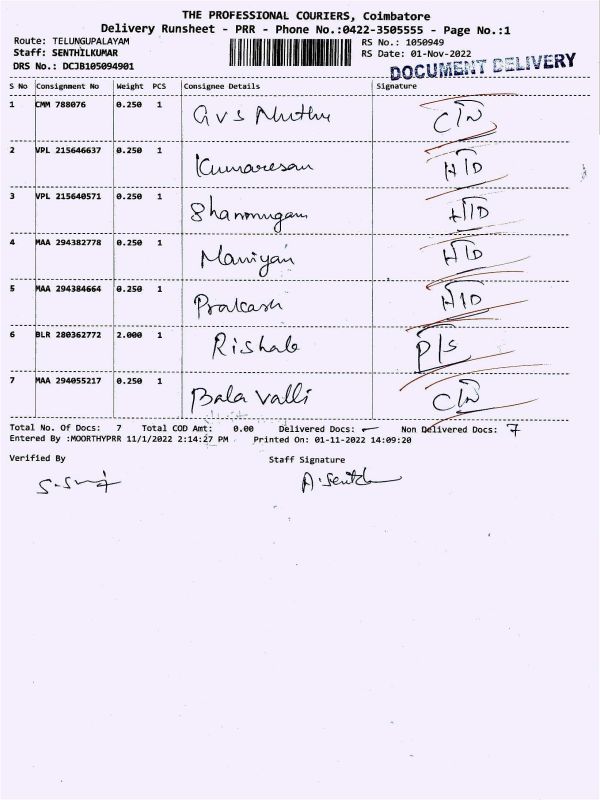 THE PROFESSIONAL COURIERS, Coimbatore
Delivery Runsheet - PRR - Phone No.:0422-3505555 - Page No.:1
Route: TELUNGUPALAYAM RS No.: 1050949
Staff: SENTHILKUMAR RS Date: 01-Nov-2022
DRS No.: DCJB105094901 DOCUMENT DELIVERY
S No Consignment No Weight PCS Consignee Details Signature
1 CMM 788076 0.250 1 G V S Muthu C/N
2 VPL 215646637 0.250 1 Kumaresan H/D
3 VPL 215640571 0.250 1 Shanmugam H/D
4 MAA 294382778 0.250 1 Maniyan H/D
5 MAA 294384664 0.250 1 Prakash H/D
6 BLR 280362772 2.000 1 Rishab P/S
7 MAA 294055217 0.250 1 Bala Valli C/N
Total No. Of Docs: 7 Total COD Amt: 0.00 Delivered Docs: – Non Delivered Docs: 7
Entered By :MOORTHYPRR 11/1/2022 2:14:27 PM Printed On: 01-11-2022 14:09:20
Verified By Staff Signature